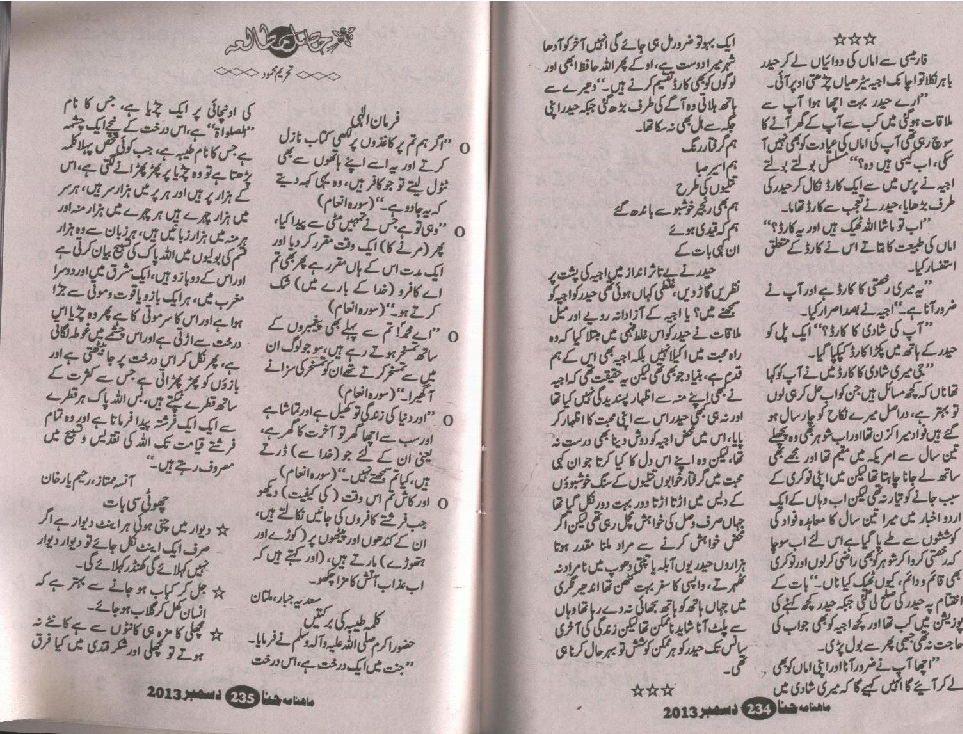 ☆☆☆
فارمیسی سے اماں کی دوائیاں لے کر حیدر
باہر نکلا تو اچانک اجیہ سیڑھیاں چڑھتی اوپر آئی۔
”ارے حیدر بہت اچھا ہوا آپ سے
ملاقات ہو گئی میں کب سے آپ کے گھر آنے کا
سوچ رہی تھی آپ کی اماں کی عیادت کو بھی نہیں آ
سکی، اب کیسی ہیں وہ؟“ مسلسل بولتے بولتے
اجیہ نے پرس میں سے ایک کارڈ نکال کر حیدر کی
طرف بڑھایا، حیدر نے تعجب سے کارڈ تھاما۔
”اب تو ماشا اللہ ٹھیک ہیں اور یہ کارڈ؟“
اماں کی طبیعت کا بتاتے اس نے کارڈ کے متعلق
استفسار کیا۔
”یہ میری رخصتی کا کارڈ ہے اور آپ نے
ضرور آنا ہے۔“ اجیہ نے بصد اصرار کہا۔
”آپ کی شادی کا کارڈ؟“ ایک پل کو
حیدر کے ہاتھ میں پکڑا کارڈ کپکپا گیا۔
”جی میری شادی کا کارڈ میں نے آپ کو کہا
تھا ناں کہ کچھ مسائل ہیں جن کو اب حل کر ہی لوں
تو بہتر ہے، دراصل میرے نکاح کو چار سال ہو
گئے ہیں فواد میرا کزن تھا اور اب شوہر بھی وہ پچھلے
تین سال سے امریکہ میں مقیم تھا اور مجھے بھی
ساتھ لے جانا چاہتا تھا لیکن میں اپنی نوکری کے
سبب جانے کو تیار نہ تھی لیکن اب وہاں کے ایک
اردو اخبار میں میرا تین سال کا معاہدہ فواد کی
کوششوں سے طے پا گیا ہے اس لئے اب سوچا
کہ رخصتی کروا کر شوہر کو بھی راضی کر لوں اور نوکری
بھی قائم و دائم، کیوں ٹھیک کیا ناں۔“ بات کے
اختتام پہ حیدر کی صلح لی گئی جبکہ حیدر کچھ کہنے کی
پوزیشن میں کب تھا اور کچھ اجیہ کو بھی جواب کی
حاجت نہ تھی جبھی پھر سے بول پڑی۔
”اچھا آپ نے ضرور آنا اور اپنی اماں کو بھی
لے کر آیئے گا انہیں کہیے گا کہ میری شادی میں
ایک بہو تو ضرور مل ہی جائے گی انہیں آخر کو آدھا
شہر میرا دوست ہے، او کے پھر اللہ حافظ ابھی اور
لوگوں کو بھی کارڈ تقسیم کرنے ہیں۔“ دھیرے سے
ہاتھ ہلاتی وہ آگے کی طرف بڑھ گئی جبکہ حیدر اپنی
جگہ سے ہل بھی نہ سکا تھا۔
ہم گرفتار رنگ
ہم اسیر صبا
تتلیوں کی طرح
ہم بھی زنجیر خوشبو سے باندھے گئے
ہم کہ قیدی ہوئے
ان کہی بات کے
حیدر نے بے تاثر انداز میں اجیہ کی پشت پر
نظریں گاڑ دیں، غلطی کہاں ہوئی تھی حیدر کو اجیہ کو
سمجھنے میں؟ یا اجیہ کے آزادانہ رویے اور میل
ملاقات نے حیدر کو اس غلط فہمی میں مبتلا کیا کہ وہ
راہ محبت میں اکیلا نہیں بلکہ اجیہ بھی اس کے ہم
قدم ہے، بنیاد جو بھی تھی لیکن یہ حقیقت تھی کہ اجیہ
نے بھی اپنے منہ سے اظہار پسندیدگی نہیں کیا تھا
اور نہ ہی کبھی حیدر اس سے اپنی محبت کا اظہار کر
پایا، اس میں محض اجیہ کو دوش دینا بھی درست نہ
تھا، لیکن وہ اپنے اس دل کا کیا کرتا جو ان کہی
محبت میں گرفتار خوابوں تتلیوں کے سنگ خوشبوؤں
کے دیس میں اڑتا اڑتا دور بہت دور نکل گیا تھا
جہاں صرف وصل کی خواہش مچل رہی تھی لیکن اگر
محض خواہش کرنے سے مراد ملنا مقدر ہوتا
ہزاروں حیدر یوں آبلہ پا تپتی دھوپ میں نامراد نہ
ٹھہرتے، واپسی کا سفر بہت کٹھن تھا اندھیر نگری
میں جہاں ہاتھ کو ہاتھ سجھائی نہ دے رہا تھا وہاں
سے پلٹ آنا شاید ناممکن تھا لیکن زندگی کی آخری
سانس تک حیدر کو ہر ممکن کوشش تو بہر حال کرنا ہی
تھی۔
☆☆☆
ماہنامہ حنا 234 دسمبر 2013
حاصل مطالعہ
تحریم محمود
فرمان الٰہی
O ”اگر ہم تم پر کاغذوں پر لکھی کتاب نازل
کرتے اور یہ اسے اپنے ہاتھوں سے بھی
ٹٹول لیتے تو جو کافر ہیں، وہ یہی کہہ دیتے
کہ یہ جادو ہے۔“ (سورہ انعام)
O ”وہی تو ہے جس نے تمہیں مٹی سے پیدا کیا،
پھر (مرنے کا) ایک وقت مقرر کر دیا اور
ایک مدت اس کے ہاں مقرر ہے پھر بھی تم
اے کافرو (خدا کے بارے میں) شک
کرتے ہو۔“ (سورہ انعام)
O ”اے محمدؐ! تم سے پہلے بھی پیغمبروں کے
ساتھ تمسخر ہوتے رہے ہیں، سو جو لوگ ان
میں سے تمسخر کرتے تھے ان کو تمسخر کی سزا نے
آ گھیرا۔“ (سورہ انعام)
O ”اور دنیا کی زندگی تو کھیل ہے اور تماشا ہے
اور سب سے اچھا گھر تو آخرت کا گھر ہے،
یعنی ان کے لئے جو (خدا سے) ڈرتے
ہیں، کیا تم سمجھتے نہیں۔“ (سورہ انعام)
O اور کاش تم اس وقت (کی کیفیت) دیکھو
جب فرشتے کافروں کی جانیں نکالتے ہیں،
ان کے کندھوں اور پیٹھوں پر (کوڑے اور
ہتھوڑے) مارتے ہیں، (اور کہتے ہیں کہ
اب عذاب آتش کا مزا چکھو۔
سعدیہ جبار، ملتان
کلمہ طیبہ کی برکتیں
حضور اکرم صلی اللہ علیہ وآلہ وسلم نے فرمایا۔
”جنت میں ایک درخت ہے، اس درخت
کی اونچائی پر ایک چڑیا ہے، جس کا نام
”الصلواۃ“ ہے، اس درخت کے نیچے ایک چشمہ
ہے جس کا نام طیبہ ہے، جب کوئی شخص پہلا کلمہ
پڑھتا ہے تو وہ چڑیا پر پھڑ پھڑانے لگتی ہے، اس
کے ہزار پر ہیں اور ہر پر میں ہزار سر ہیں، ہر سر
میں ہزار چہرے ہیں ہر چہرے میں ہزار منہ اور
ہر منہ میں ہزار زبانیں ہیں، ہر زبان سے وہ ہزار
قسم کی بولیوں میں اللہ پاک کی تسبیح بیان کرتی ہے
اور اس کے دو بازو ہیں، ایک مشرق میں اور دوسرا
مغرب میں، ہر ایک بازو یاقوت و موتی سے جڑا
ہوا ہے اور اس کا سر موتی کا ہے پھر وہ چڑیا اس
درخت سے اڑتی ہے اور اس چشمے میں غوطہ لگاتی
ہے، پھر نکل کر اس درخت پر جا بیٹھتی ہے اور
بازوؤں کو پھڑ پھڑاتی ہے جس سے کثرت کے
ساتھ قطرے ٹپکتے ہیں، بس اللہ پاک ہر قطرے
سے ایک ایک فرشتہ پیدا فرماتا ہے اور وہ تمام
فرشتے قیامت تک اللہ کی تقدیس و تسبیح میں
مصروف رہتے ہیں۔“
آنسہ ممتاز، رحیم یار خان
چھوٹی سی بات
☆ دیوار میں چنی ہوئی ہر اینٹ دیوار ہے اگر
صرف ایک اینٹ نکل جائے تو دیوار دیوار
نہیں کہلائے گی کھنڈر کہلائے گی۔
☆ جل کر کباب ہو جانے سے بہتر ہے کہ
انسان کھل کر گلاب ہو جائے۔
☆ مچھلی کا مزہ ہی کانٹوں سے ہے کانٹے نہ
ہوتے تو مچھلی اور شکر قندی میں کیا فرق
ماہنامہ حنا 235 دسمبر 2013